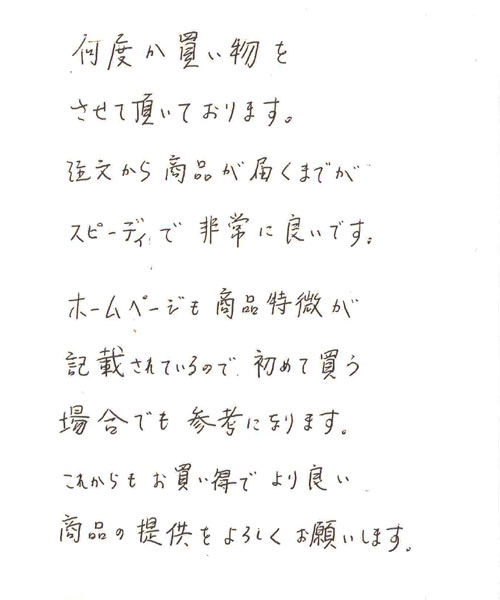 何度か買い物を
させて頂いております。
注文から商品が届くまでが
スピーディで非常に良いです。
ホームページも商品特微が
記載されているので初めて買う
場合でも参考になります。
これからもお買い得でより良い
商品の提供をよろしくお願いします。